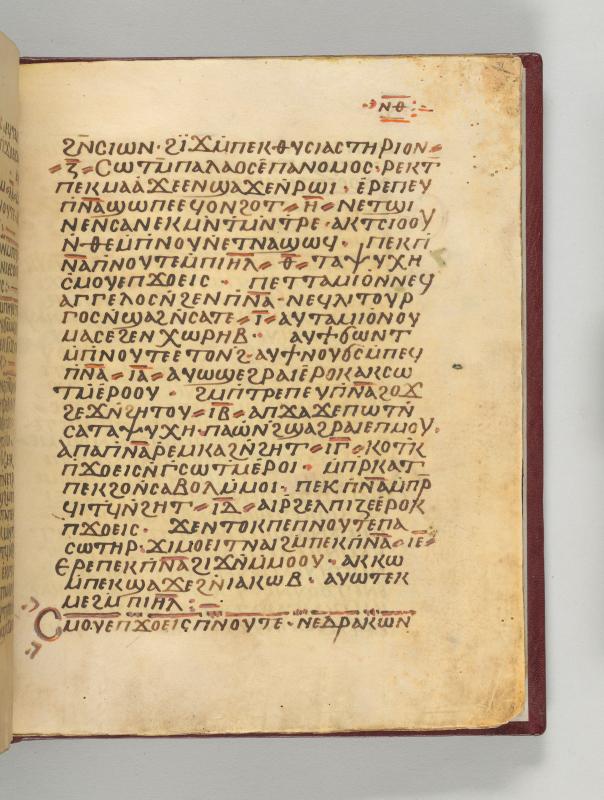 ⲛⲑ
ϩⲛ̄ⲥⲓⲱⲛ· ϩⲓϫⲙ̄ⲡⲉⲕⲑⲩⲥⲓⲁⲥⲧⲏⲣⲓⲟⲛ
ⲍ̄ Ⲥⲱⲧⲙ̄ⲡⲁⲗⲁⲟⲥⲉ̄ⲡⲁⲛⲟⲙⲟⲥ· ⲣⲉⲕⲧ
ⲡⲉⲕⲙⲁⲁϫⲉⲉⲛϣⲁϫⲉⲛ̄ⲣⲱⲓ· ⲉ̄ⲣⲉⲡⲉⲩ
ⲡ̄ⲛ̄ⲁ̄ϣⲱⲡⲉⲉϥⲟⲛϩⲟⲧ ⲏ̄ ⲛⲉⲧϣⲓ
ⲛⲉⲛ̄ⲥⲁⲛⲉⲕⲙⲛ̄ⲧⲙⲛ̄ⲧⲣⲉ· ⲁⲕⲧⲥⲓⲟⲟⲩ
ⲛ·ⲑⲉⲙ̄ⲡⲛⲟⲩⲛ̄ⲉⲧⲛⲁϣⲱϥ· ⲡⲉⲕⲡ̄
ⲛ̄ⲁ̄ⲡⲛⲟⲩⲧⲉⲙ̄ⲡⲓⲏ̄ⲗ̄ ⲑ̄ ⲧⲁⲯⲩⲭⲏ
ⲥⲙⲟⲩⲉⲡϫⲟⲉⲓⲥ· ⲡⲉⲧⲧⲁⲙⲓⲟ̄ⲛⲛⲉϥ
ⲁⲅⲅⲉⲗⲟⲥⲛ̄ϩⲉⲛⲡ̄ⲛ̄ⲁ̄· ⲛⲉϥⲗⲓⲧⲟⲩⲣ
ⲅⲟⲥⲛ̄ϣⲁϩⲛ̄ⲥⲁⲧⲉ ⲓ̄ ⲁⲩⲧⲁⲙⲓⲟ̄ⲛⲟⲩ
ⲙⲁⲥⲉϩⲉⲛⲭⲱⲣⲏⲃ· ⲁⲩϯϭⲱⲛⲧ
ⲙ̄ⲡⲛⲟⲩⲧⲉⲉⲧⲟⲛϩ·ⲁⲩϯⲛⲟⲩϭⲥⲙ̄ⲡⲉϥ
ⲡ̄ⲛ̄ⲁ̄ ⲓ̄ⲁ̄ ⲁⲩⲱϣⲉϩⲣⲁⲓⲉ̄ⲣⲟⲕⲁⲕⲥⲱ
ⲧⲙ̄ⲉⲣⲟⲟⲩ· ϩⲙ̄ⲡⲧⲣⲉⲡⲉⲩⲡ̄ⲛ̄ⲁ̄ϩⲟϫ
ϩⲉϫⲛ̄ϩⲏⲧⲟⲩ ⲓ̄ⲃ̄ ⲁⲡϫⲁϫⲉⲡⲱⲧⲛ̄
ⲥⲁⲧⲁⲯⲩⲭⲏ·ⲡⲁⲱⲛϩ̄ϣⲁϩⲣⲁⲓⲉⲡⲙⲟⲩ·
ⲁⲡⲁⲡ̄ⲛ̄ⲁ̄ⲣ̄ⲉⲙⲕⲁϩⲛ̄ϩⲏⲧ ⲓ̄ⲅ̄ ⲕⲟⲧⲕ̄
ⲡϫⲟⲉⲓⲥⲛⲅ̄ⲥⲱⲧⲙ̄ⲉⲣⲟⲓ· ⲙ̄ⲡⲣ̄ⲕⲁⲧ
ⲡⲉⲕϩⲟⲛ̄ⲥⲁⲃⲟⲗⲙ̄ⲙⲟⲓ· ⲡⲉⲕⲡ̄ⲛ̄ⲁ̄ⲙ̄ⲡⲣ̄
ϥⲓⲧϥⲛ̄ϩⲏⲧ ⲓ̄ⲇ̄ ⲁⲓⲣ̄ϩⲉⲗⲡⲓⲍⲉⲉ̄ⲣⲟⲕ
ⲡϫⲟⲉⲓⲥ· ϫⲉⲛⲧⲟⲕⲡⲉⲡⲛⲟⲩⲧⲉⲡⲁ
ⲥⲱⲧⲏⲣ·ϫⲓⲙⲟⲉⲓⲧⲛⲁⲓϩⲙ̄ⲡⲉⲕⲡ̄ⲛ̄ⲁ̄ ⲓ̄ⲉ̄
Ⲉⲣⲉⲡⲉⲕⲡ̄ⲛ̄ⲁ̄ϩⲓϫⲛ̄ⲙ̄ⲙⲟⲟⲩ· ⲁⲕⲕⲱ
ⲙ̄ⲡⲉⲕϣⲁϫⲉϩⲛ̄ⲓⲁⲕⲱⲃ· ⲁⲩⲱⲧⲉⲕ
ⲙⲉϩⲙ̄ⲡⲓⲏ̄ⲗ̄
Ⲥⲙⲟⲩⲉⲡϫⲟⲉⲓⲥⲡⲛⲟⲩⲧⲉ· ⲛⲉⲇⲣⲁⲕⲱⲛ